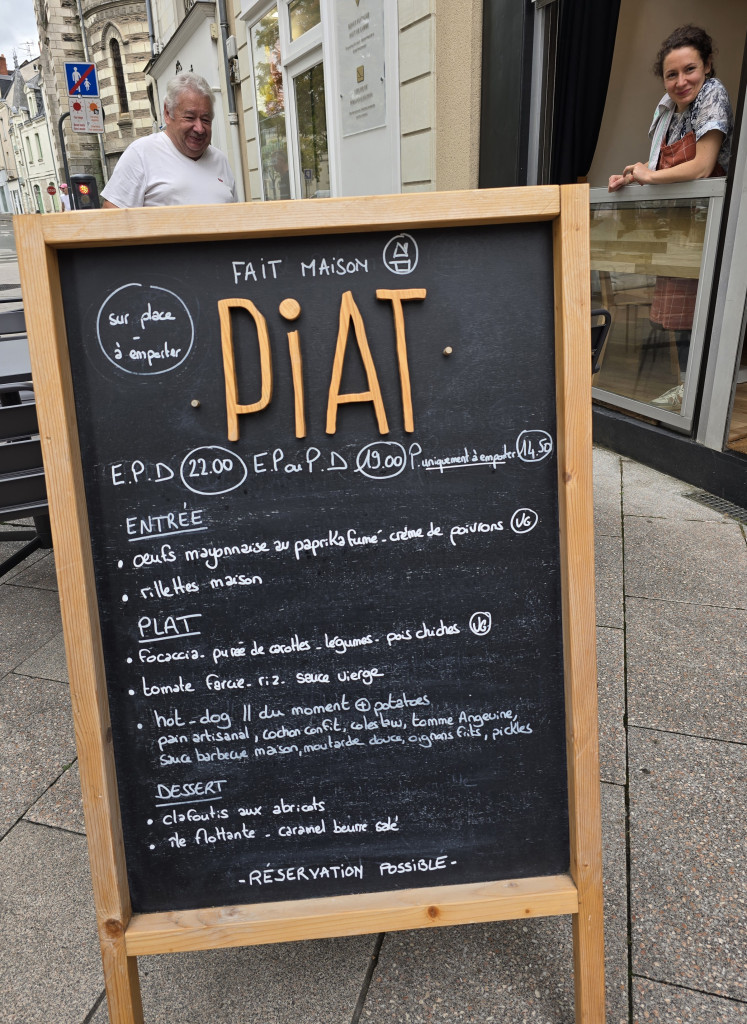 FAIT MAISON
sur place
-
à emporter
PiAT
E.P.D 22.00 E.P ou P.D 19.00 P. uniquement à emporter 14.50
ENTRÉE
• oeufs mayonnaise au paprika fumé - crème de poivrons VG
• rillettes maison
PLAT
• focaccia - purée de carottes - légumes - pois chiches VG
• tomate farcie - riz - sauce vierge
• hot-dog || du moment + potatoes
pain artisanal, cochon confit, coleslaw, tomme Angevine,
sauce barbecue maison, moutarde douce, oignons frits, pickles
DESSERT
• clafoutis aux abricots
• île flottante - caramel beurre salé
- RÉSERVATION POSSIBLE -